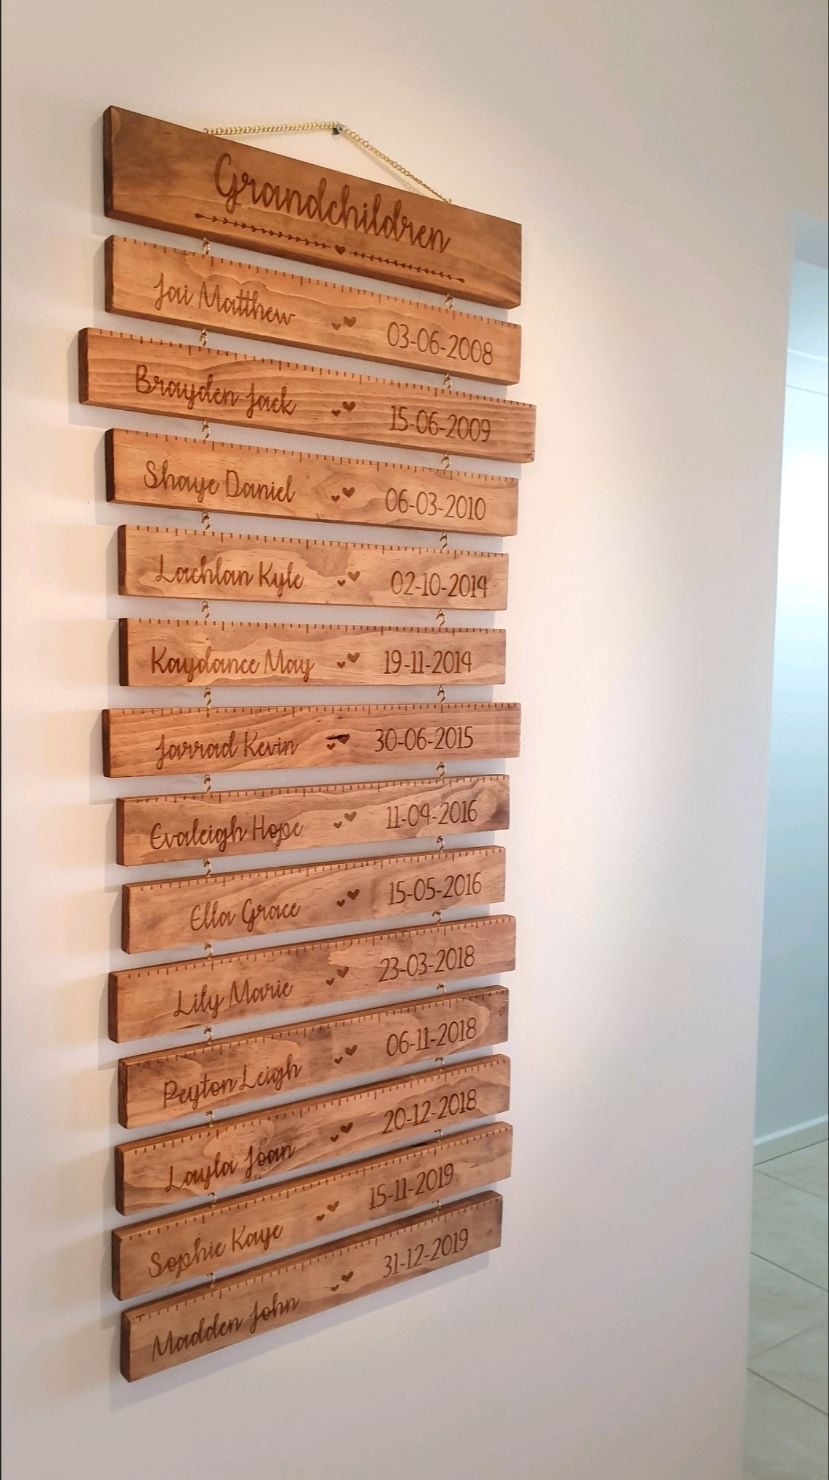 Grandchildren
Jai Matthew 03-06-2008
Brayden Jack 15-06-2009
Shaye Daniel 06-03-2010
Lachlan Kyle 02-10-2014
Kaydance May 19-11-2014
Jarrad Kevin 30-06-2015
Evaleigh Hope 11-04-2016
Ella Grace 15-05-2016
Lily Marie 23-03-2018
Peyton Leigh 06-11-2018
Layla Joan 20-12-2018
Sophie Kaye 15-11-2019
Madden John 31-12-2019